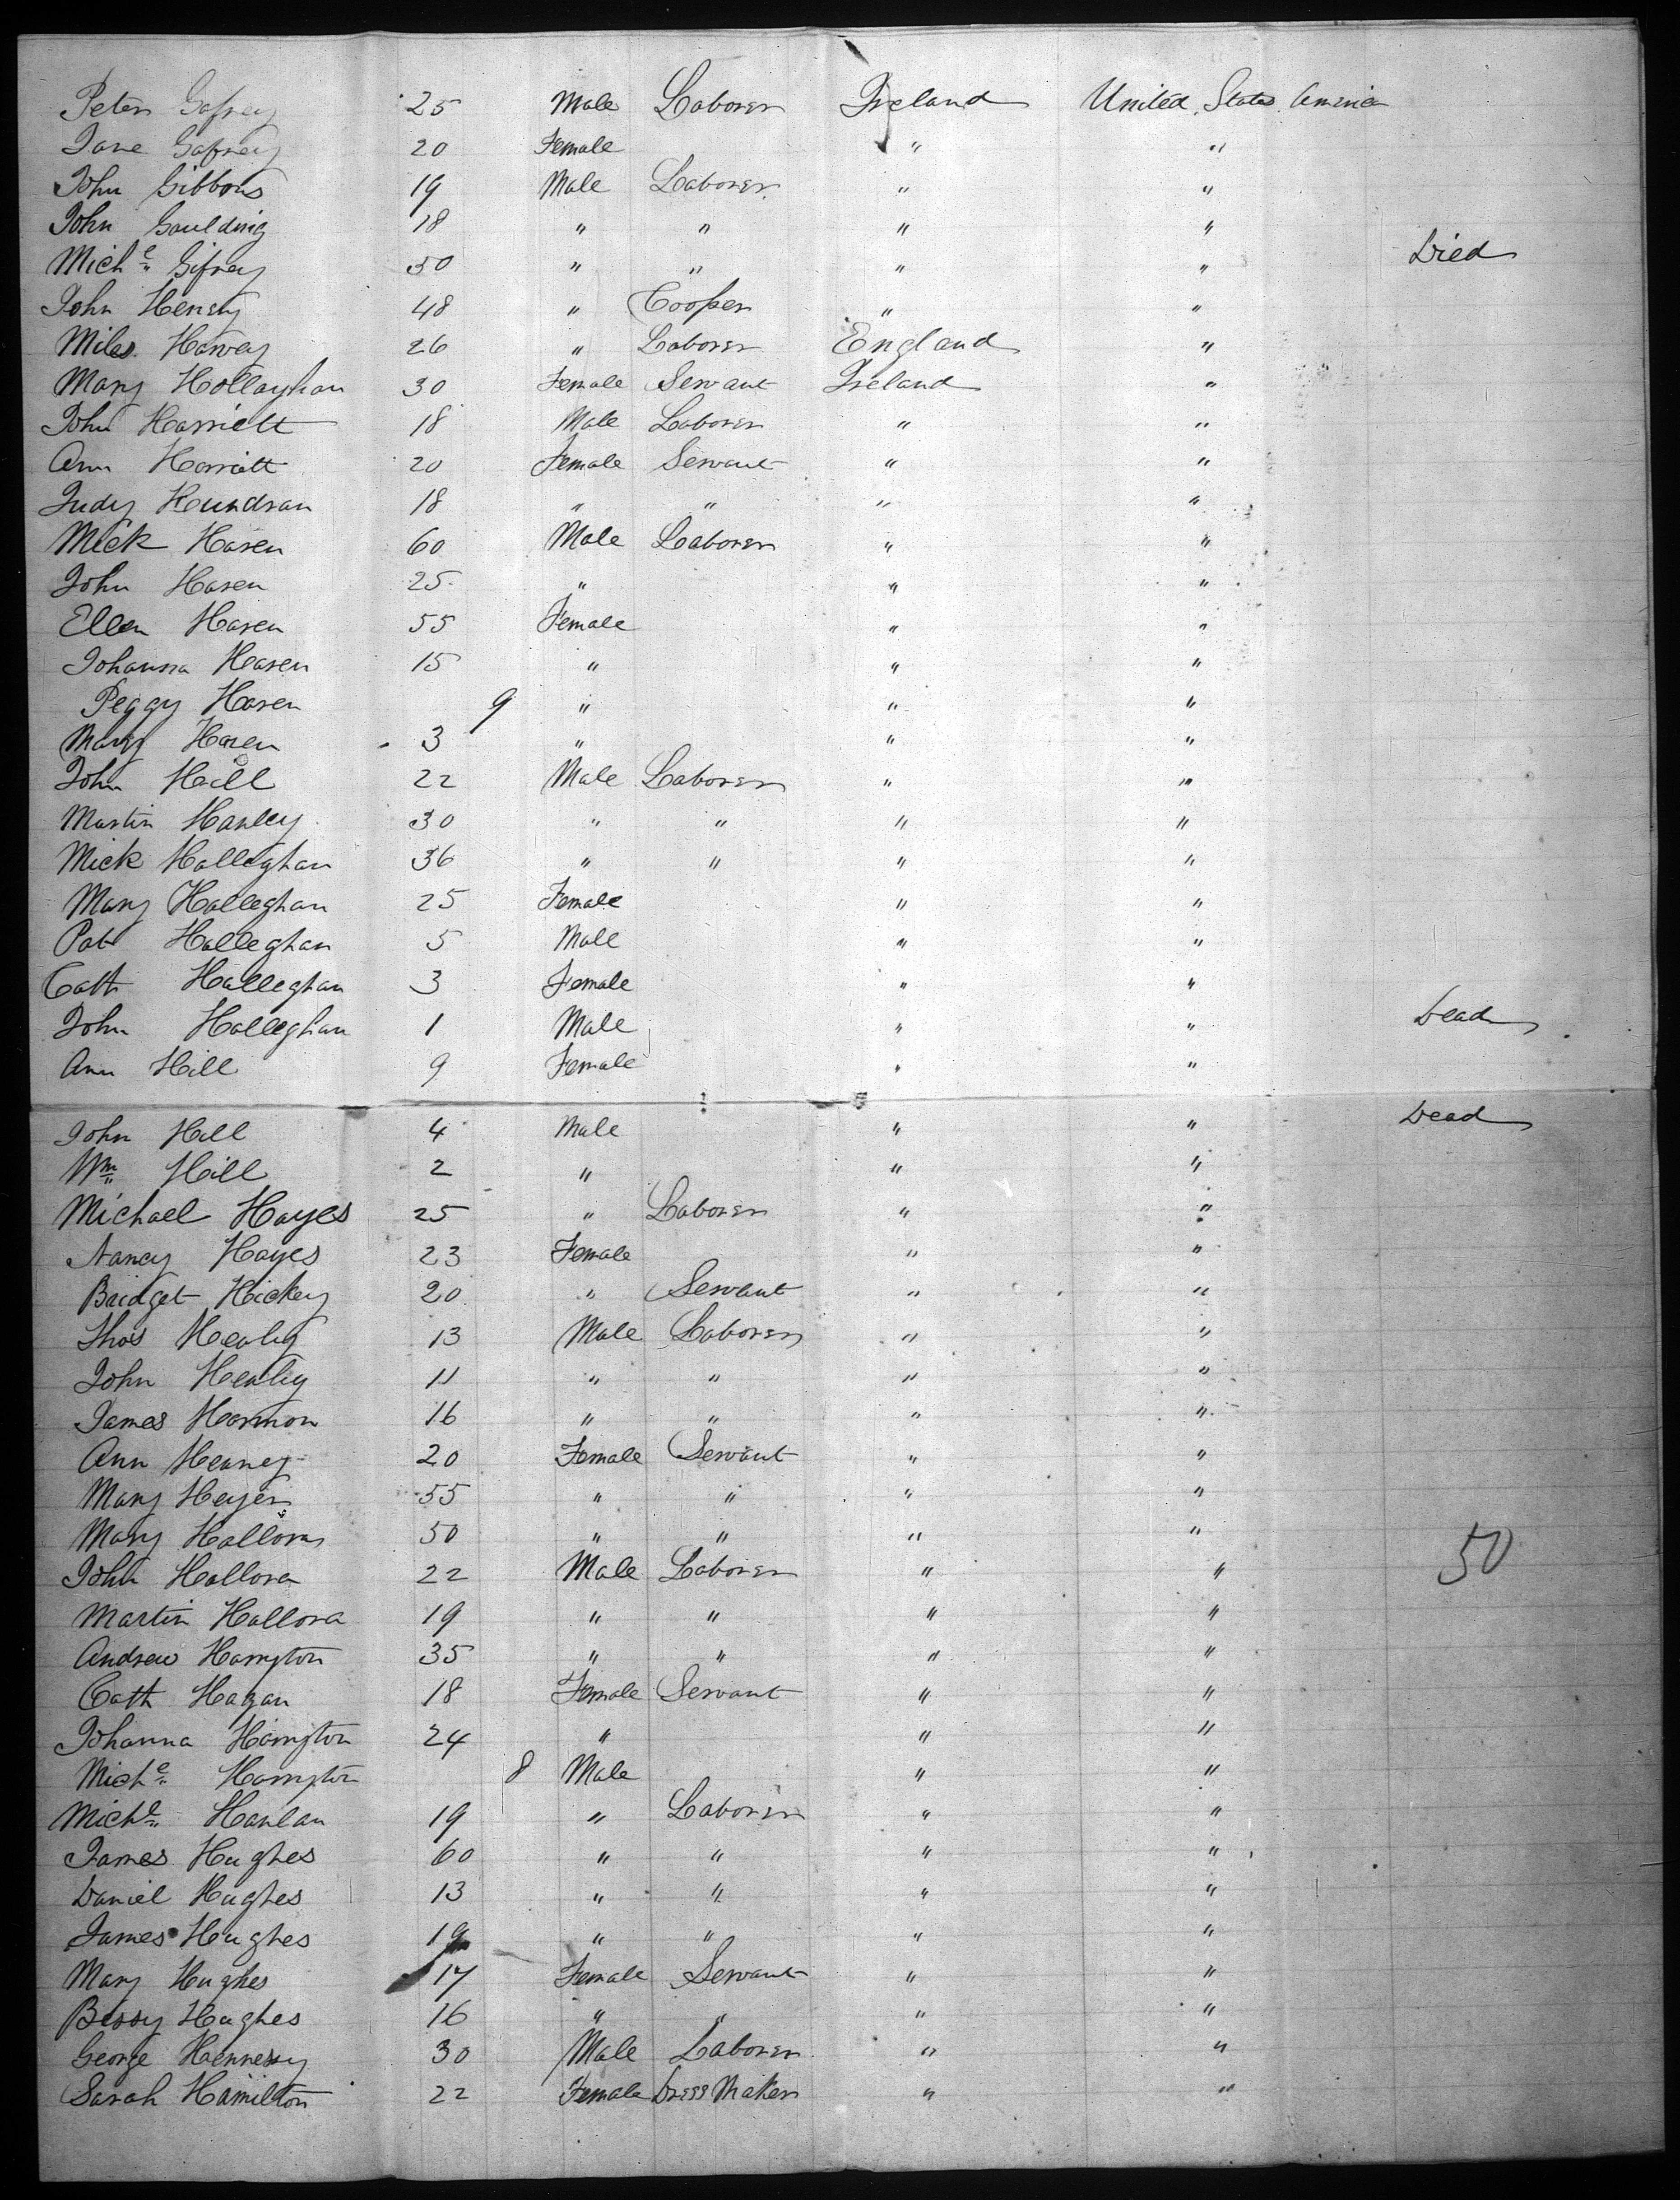 Peter Gafney 25 Male Laborer Ireland United States America
Jane Gafney 20 Female " "
John Gibbons 19 Male Laborer " "
John Goulding 18 " " " "
Michl Gifney 30 " " " " Died
John Henery 48 " Cooper " "
Miles Harvey 26 " Laborer England "
Mary Hollaghan 30 Female Servant Ireland "
John Harriett 18 Male Laborer " "
Ann Harriott 20 Female Servant " "
Judy Hundran 18 " " " "
Mick Haren 60 Male Laborer " "
John Haren 25 " " "
Ellen Haren 55 Female " "
Johanna Haren 15 " " "
Peggy Haren 9 " " "
Mary Haren 3 " " "
John Hall 22 Male Laborer " "
Martin Hanley 30 " " " "
Mick Halleghan 36 " " " "
Mary Halleghan 25 Female " "
Pat Halleghan 5 Male " "
Cath Halleghan 3 Female " "
John Halleghan 1 Male " " Dead
Ann Hill 9 Female " "
John Hill 4 Male " " Dead
Wm Hill 2 " " "
Michael Hayes 25 " Laborer " "
Nancy Hayes 23 Female " "
Bridget Hickey 20 " Servant " "
Thos Healey 13 Male Laborer " "
John Healey 11 " " " "
James Harmon 16 " " " "
Ann Heaney 20 Female Servant " "
Mary Heyer 55 " " " "
Mary Hallora 50 " " " "
John Hallora 22 Male Laborer " " 50
Martin Hallora 19 " " " "
Andrew Harrington 35 " " " "
Cath Hagan 18 Female Servant " "
Johanna Harrington 24 " " "
Michl Harrington 8 Male " "
Michl Hanlan 19 " Laborer " "
James Hughes 60 " " " "
Daniel Hughes 13 " " " "
James Hughes 19 " " " "
Mary Hughes 17 Female Servant " "
Bessy Hughes 16 " " " "
George Hennessy 30 Male Laborer " "
Sarah Hamilton 22 Female Dress Maker " "